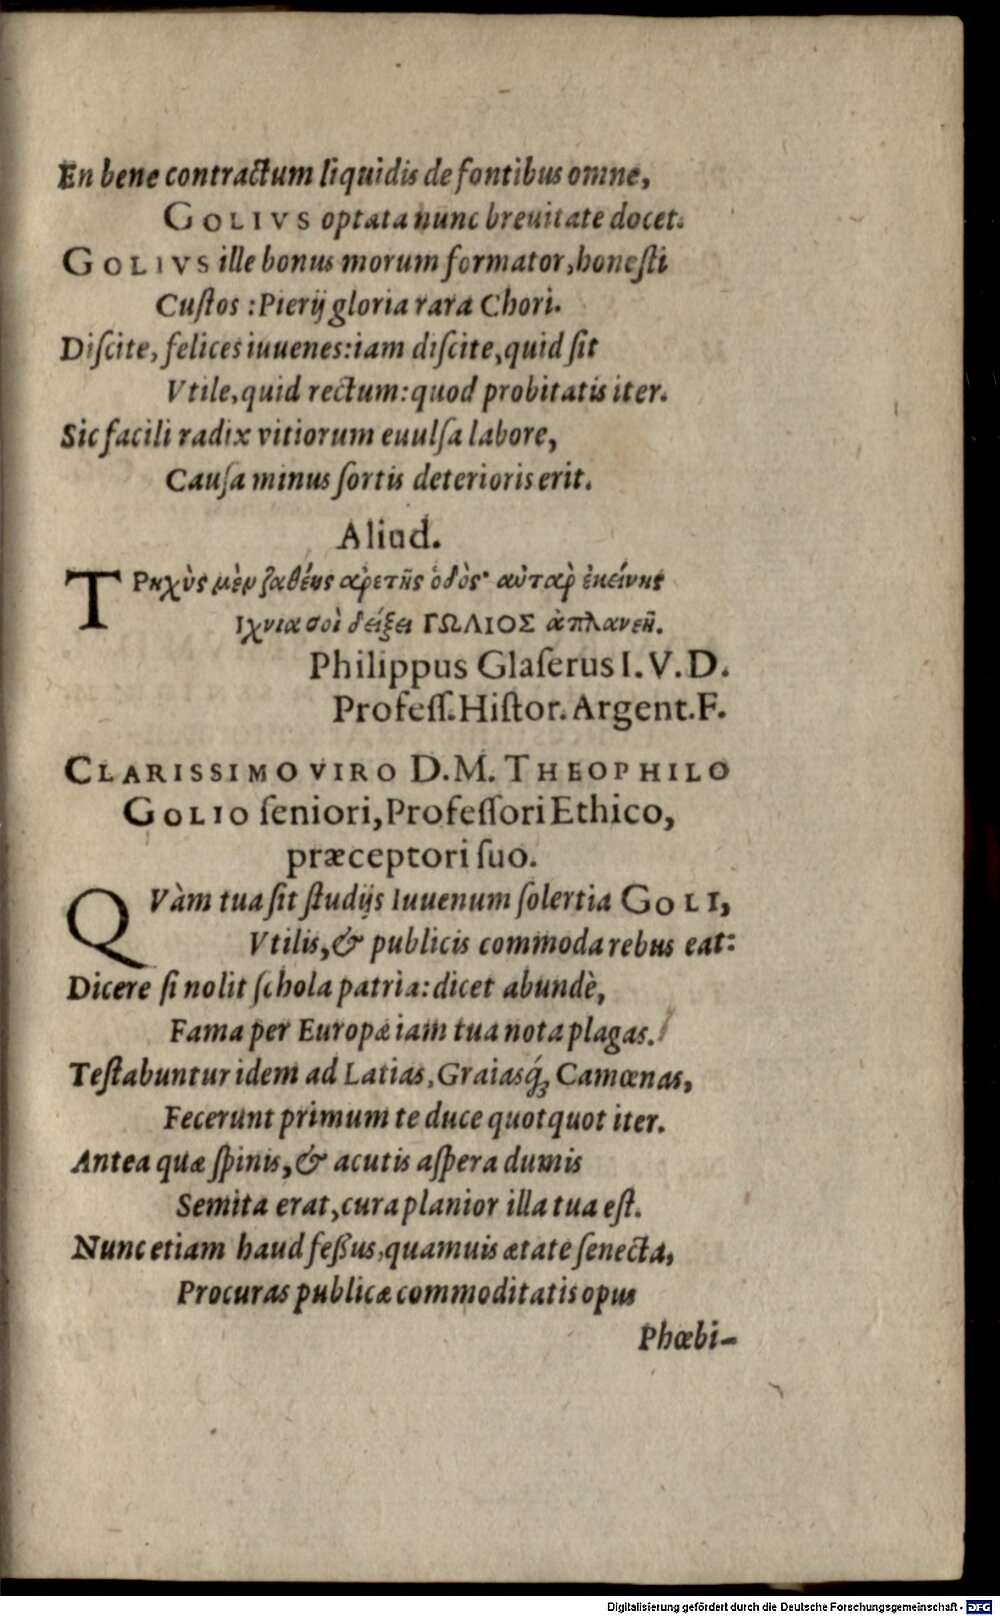 En bene contractum liquidis de fontibus omne,
GOLIVS optata nunc breuitate docet.
GOLIVS ille bonus morum formator, honesti
Custos: Pierij gloria rara Chori.
Discite, felices iuuenes: iam discite, quid sit
Vtile, quid rectum: quod probitatis iter.
Sic facili radix vitiorum euulsa labore,
Causa minus sortis deterioris erit.
Aliud.
ΤΡηχὺς μὲν ζαθέης ἀρετῆς ὁδὸς· αὐτὰρ ἐκείνης
Ιχνια σοὶ δείξει ΓΩΛΙΟΣ ἀπλανεῆ.
Philippus Glaserus I. V. D.
Profess. Histor. Argent. F.
CLARISSIMO VIRO D. M. THEOPHILO
GOLIO seniori, Professori Ethico,
præceptori suo.
QVàm tua sit studijs Iuuenum solertia GOLI,
Vtilis, & publicis commoda rebus eat:
Dicere si nolit schola patria: dicet abundè,
Fama per Europæ iam tua nota plagas.
Testabuntur idem ad Latias, Graiasq́; Camœnas,
Fecerunt primum te duce quotquot iter.
Antea quæ spinis, & acutis aspera dumis
Semita erat, cura planior illa tua est.
Nunc etiam haud feßus, quamuis ætate senecta,
Procuras publicæ commoditatis opus
Phœbi-
Digitalisierung gefördert durch die Deutsche Forschungsgemeinschaft - DFG